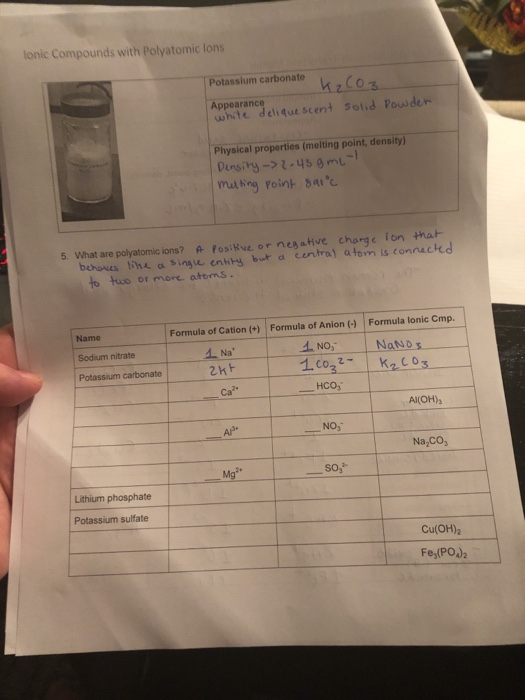 Ionic Compounds with Polyatomic Ions
Potassium carbonate K2CO3
Appearance
white deliquescent solid Powder
Physical properties (melting point, density)
Density -> 2.43 g mL⁻¹
melting Point 891°C
5. What are polyatomic ions? A Positive or negative charge Ion that
behaves like a single entity but a central atom is connected
to two or more atoms.
Name Formula of Cation (+) Formula of Anion (-) Formula Ionic Cmp.
Sodium nitrate 1 Na⁺ 1 NO₃⁻ NaNO3
Potassium carbonate 2K+ 1 CO3 2- K2CO3
__ Ca²⁺ __ HCO₃⁻
Al(OH)₃
__ Al³⁺ __ NO₃⁻
Na₂CO₃
__ Mg²⁺ __ SO₃²⁻
Lithium phosphate
Potassium sulfate
Cu(OH)₂
Fe₃(PO₄)₂